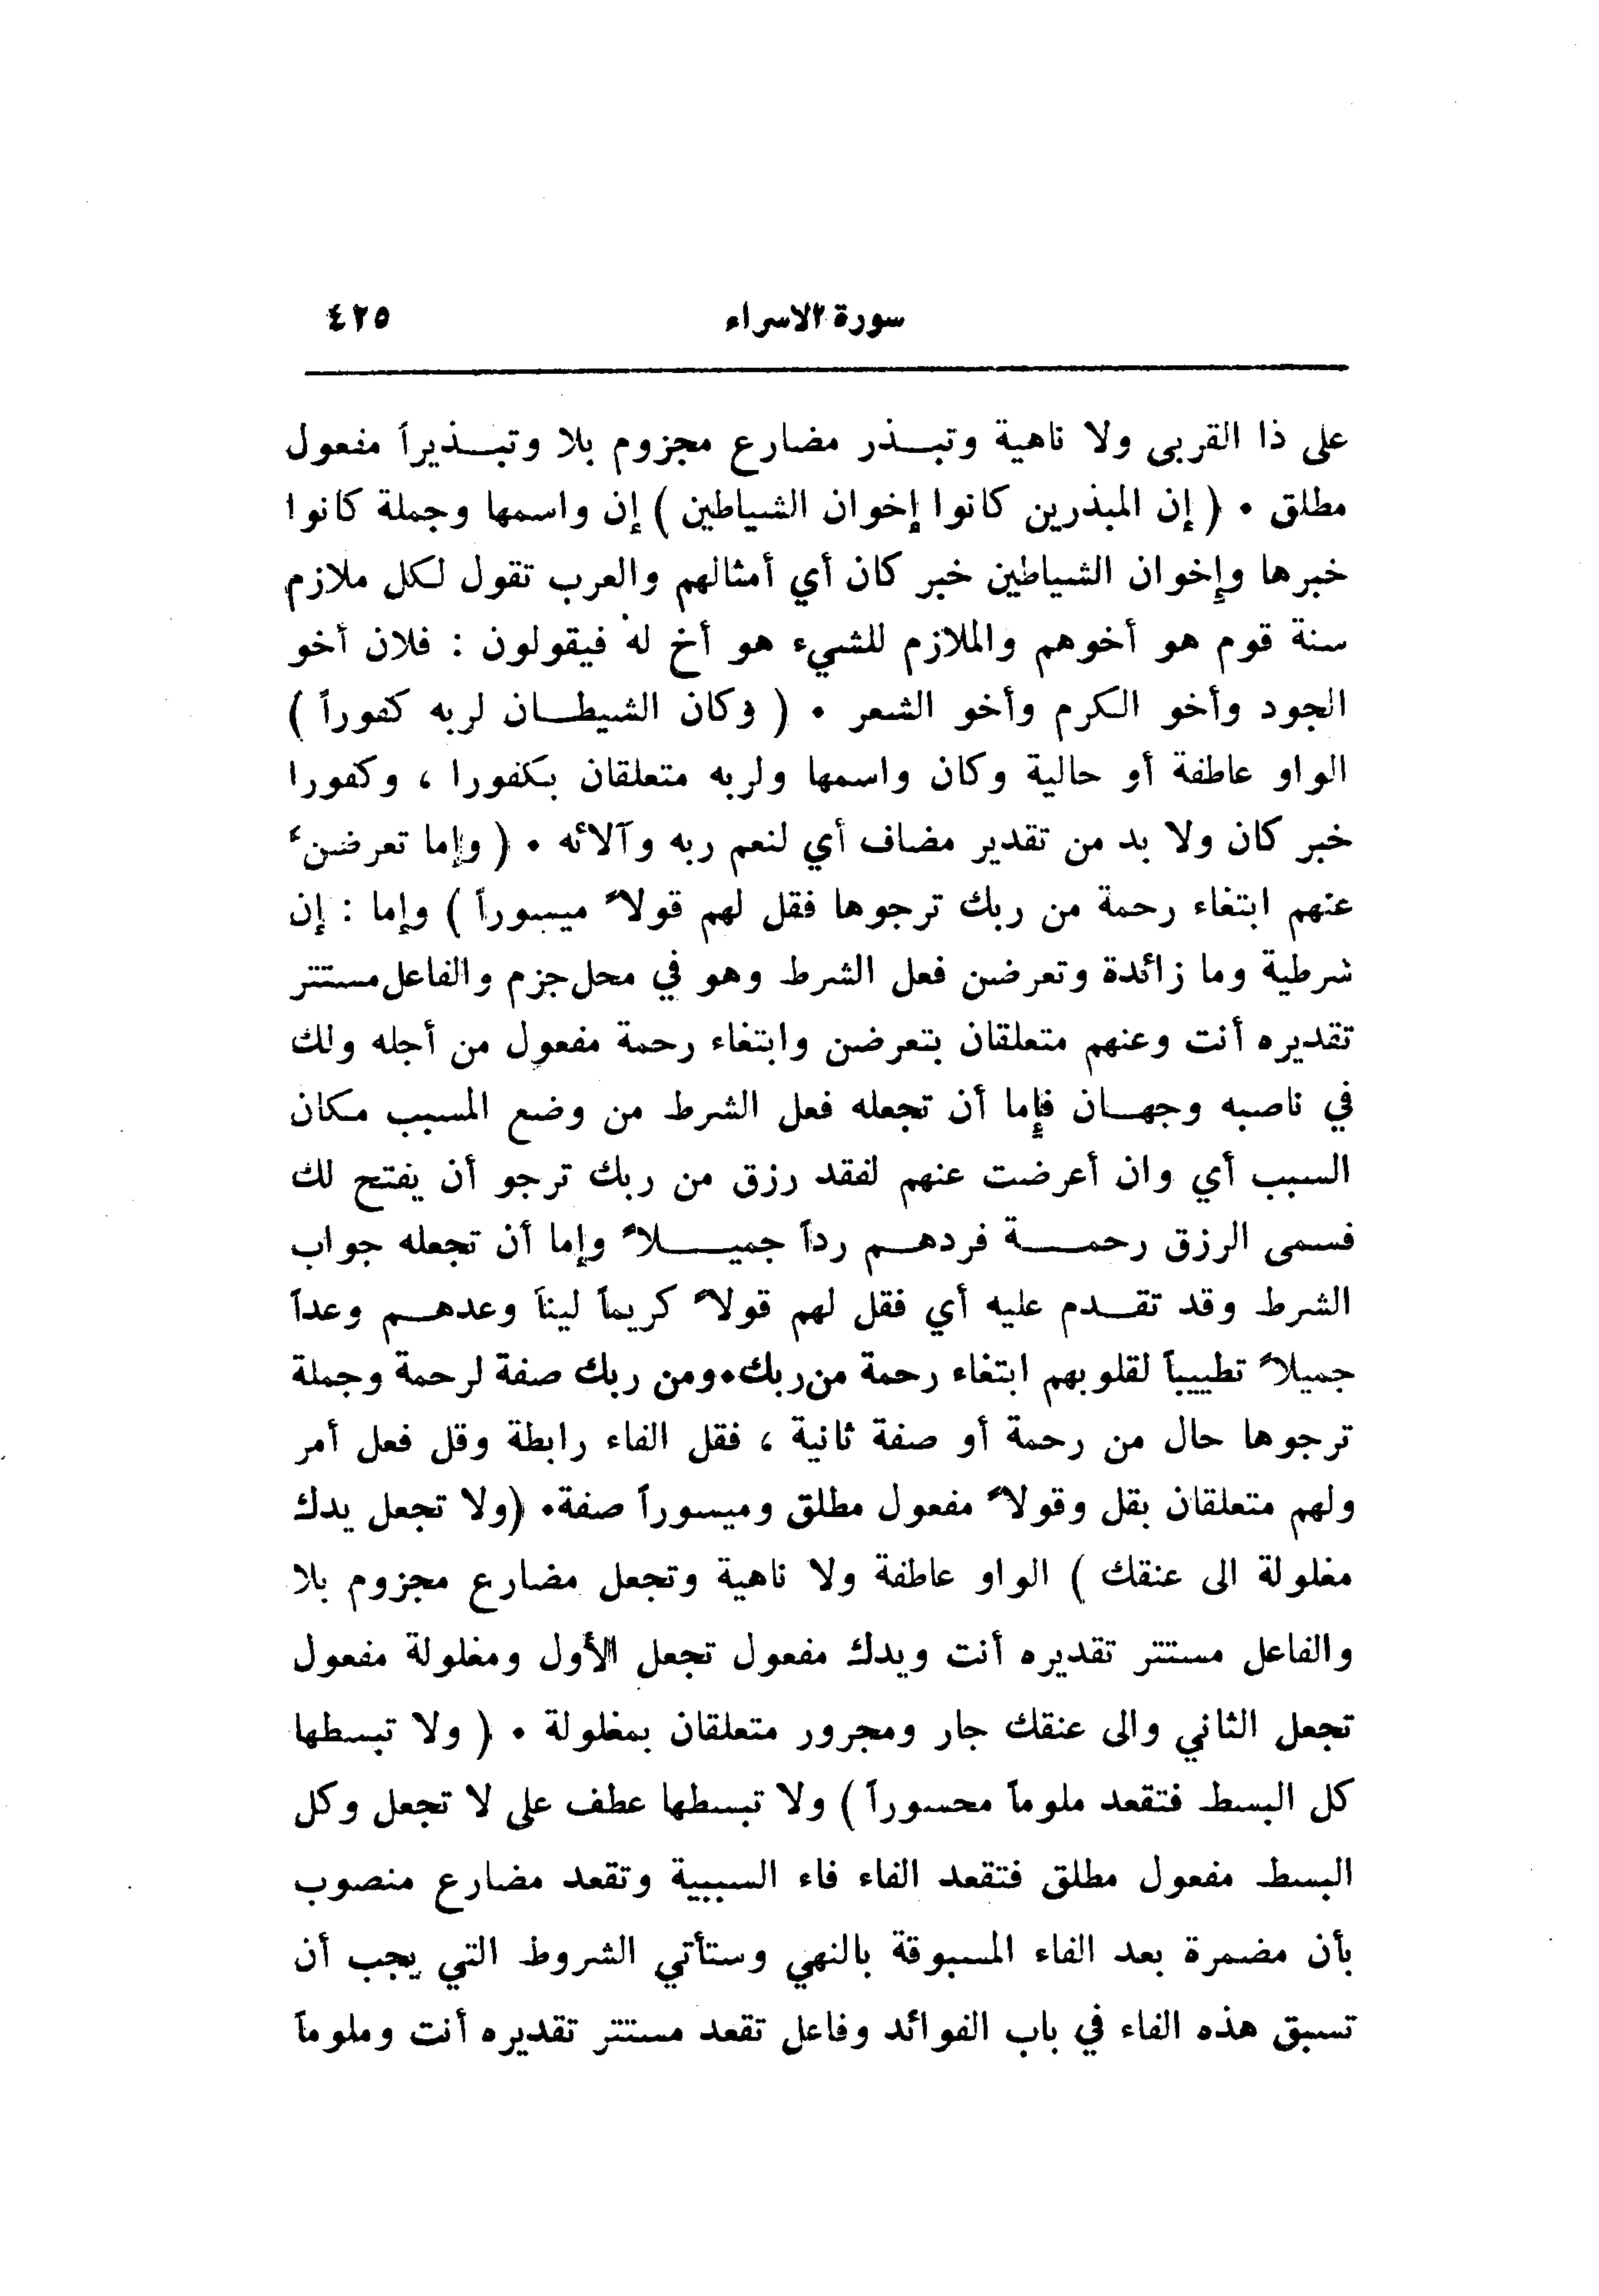 سورة الاسراء ٤٢٥
على ذا القربى ولا ناهية وتبـــذر مضارع مجزوم بلا وتبـــذيراً مفعول
مطلق . ( إن المبذرين كانوا إخوان الشياطين ) إن واسمها وجملة كانوا
خبرها وإخوان الشياطين خبر كان أي أمثالهم والعرب تقول لكل ملازم
سنة قوم هو أخوهم والملازم للشيء هو أخ له فيقولون : فلان أخو
الجود وأخو الكرم وأخو الشعر . ( وكان الشيطـــان لربه كفوراً )
الواو عاطفة أو حالية وكان واسمها ولربه متعلقان بكفورا ، وكفورا
خبر كان ولا بد من تقدير مضاف أي لنعم ربه وآلائه . ( وإما تعرضنّ
عنهم ابتغاء رحمة من ربك ترجوها فقل لهم قولاً ميسوراً ) وإما : إن
شرطية وما زائدة وتعرضن فعل الشرط وهو في محل جزم والفاعل مستتر
تقديره أنت وعنهم متعلقان بتعرضن وابتغاء رحمة مفعول من أجله ولك
في ناصبه وجهـــان فإما أن تجعله فعل الشرط من وضع المسبب مكان
السبب أي وان أعرضت عنهم لفقد رزق من ربك ترجو أن يفتح لك
فسمى الرزق رحمـــة فردهـــم رداً جميـــلاً وإما أن تجعله جواب
الشرط وقد تقـــدم عليه أي فقل لهم قولاً كريماً ليناً وعدهـــم وعداً
جميلاً تطييباً لقلوبهم ابتغاء رحمة من ربك.ومن ربك صفة لرحمة وجملة
ترجوها حال من رحمة أو صفة ثانية ، فقل الفاء رابطة وقل فعل أمر
ولهم متعلقان بقل وقولاً مفعول مطلق وميسوراً صفة. (ولا تجعل يدك
مغلولة الى عنقك ) الواو عاطفة ولا ناهية وتجعل مضارع مجزوم بلا
والفاعل مستتر تقديره أنت ويدك مفعول تجعل الأول ومغلولة مفعول
تجعل الثاني والى عنقك جار ومجرور متعلقان بمغلولة . ( ولا تبسطها
كل البسط فتقعد ملوماً محسوراً ) ولا تبسطها عطف على لا تجعل وكل
البسط مفعول مطلق فتقعد الفاء فاء السببية وتقعد مضارع منصوب
بأن مضمرة بعد الفاء المسبوقة بالنهي وستأتي الشروط التي يجب أن
تسبق هذه الفاء في باب الفوائد وفاعل تقعد مستتر تقديره أنت وملوماً